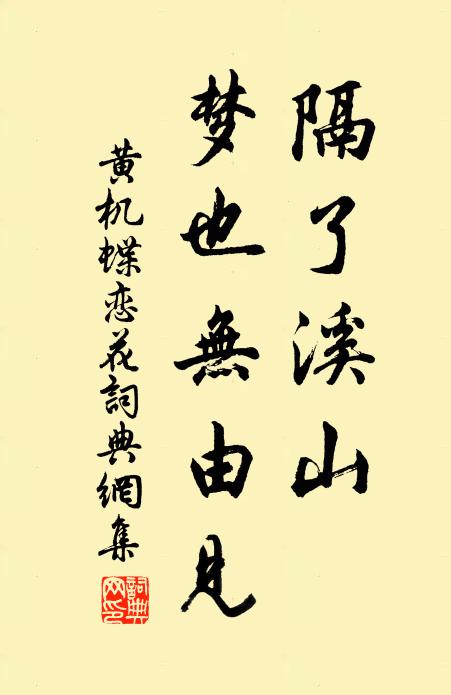 隔了溪山
梦也無由見
黄机蝶恋花詞典網集
詞典网印